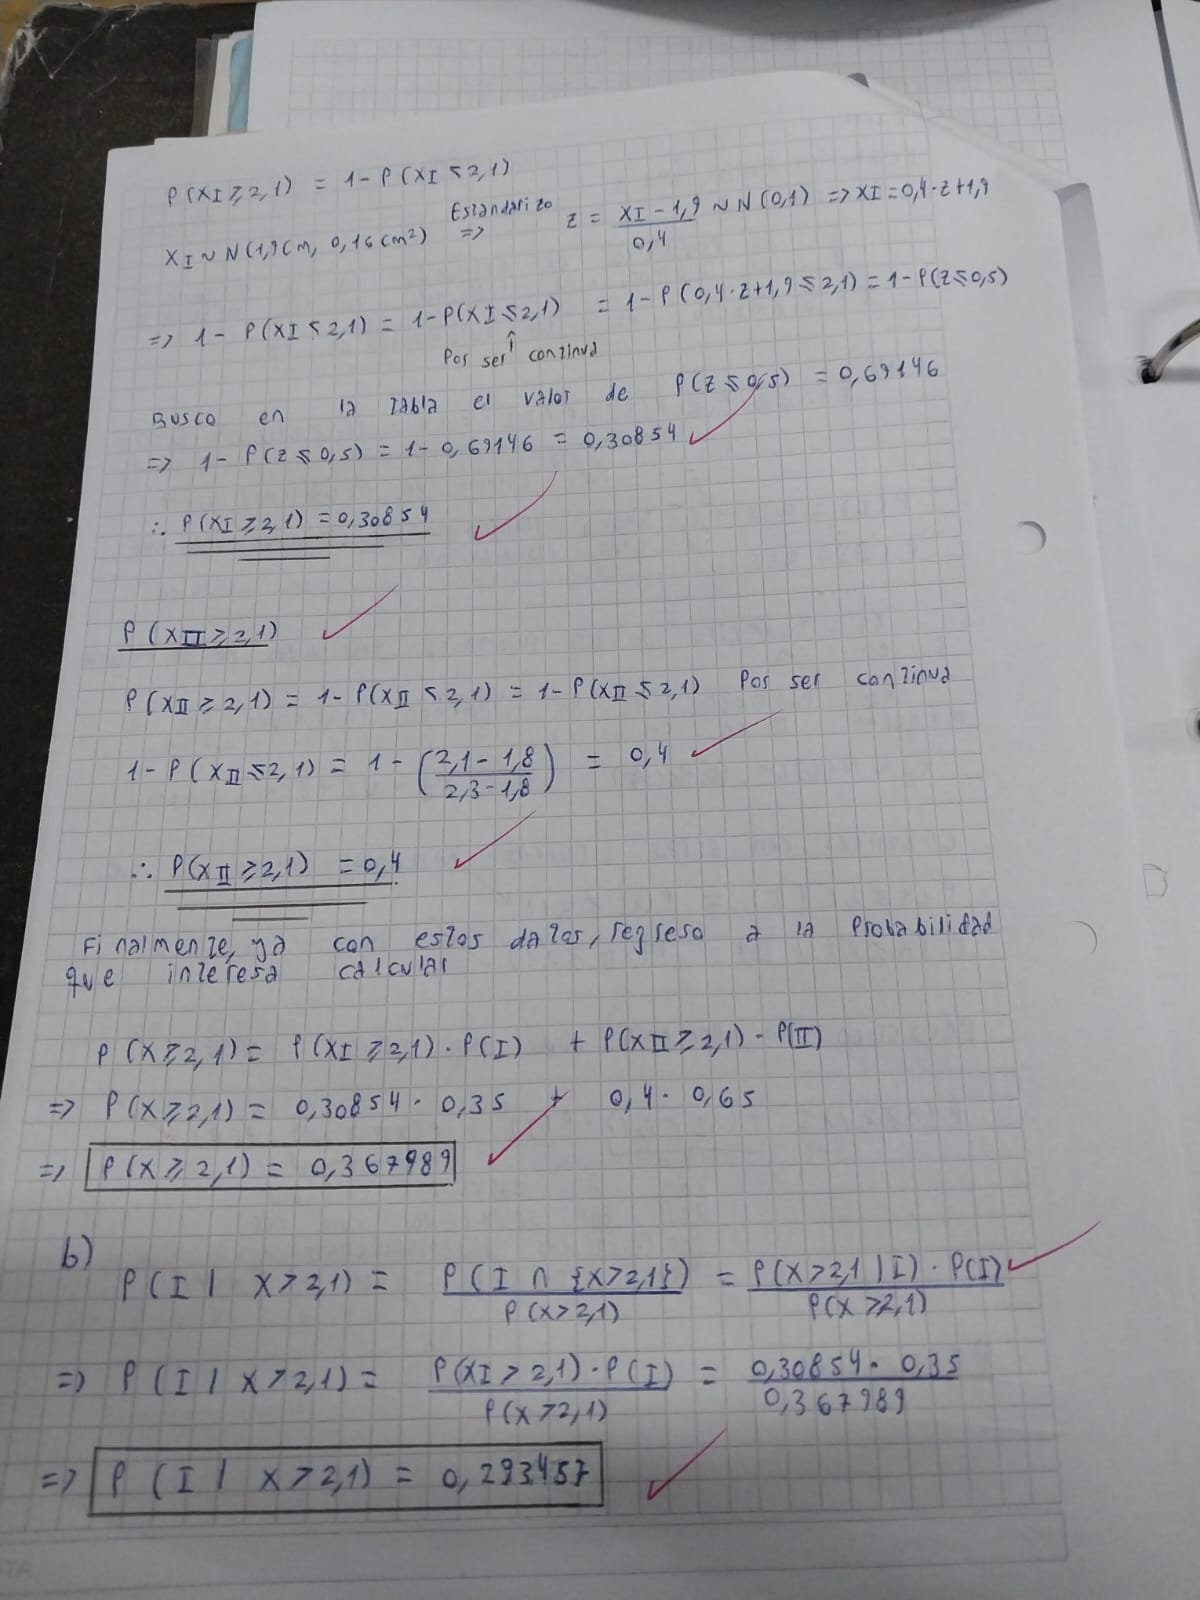 P(XI ≥ 2,1) = 1 - P(XI < 2,1)
XI ~ N(1,9cm, 0,16cm²) Estandarizo => z = (XI - 1,9)/0,4 ~ N(0,1) => XI = 0,4·z+1,9
=> 1 - P(XI < 2,1) = 1 - P(XI ≤ 2,1) = 1 - P(0,4·z+1,9 ≤ 2,1) = 1 - P(z ≤ 0,5)
Por ser continua
Busco en la tabla el valor de P(z ≤ 0,5) = 0,69146
=> 1 - P(z ≤ 0,5) = 1 - 0,69146 = 0,30854
∴ P(XI ≥ 2,1) = 0,30854
P(XII ≥ 2,1)
P(XII ≥ 2,1) = 1 - P(XII < 2,1) = 1 - P(XII ≤ 2,1) Por ser continua
1 - P(XII ≤ 2,1) = 1 - ((2,1 - 1,8)/(2,3 - 1,8)) = 0,4
∴ P(XII ≥ 2,1) = 0,4
Finalmente, ya con estos datos, regreso a la Probabilidad
que interesa calcular
P(X ≥ 2,1) = P(XI ≥ 2,1) · P(I) + P(XII ≥ 2,1) · P(II)
=> P(X ≥ 2,1) = 0,30854 · 0,35 + 0,4 · 0,65
=> P(X ≥ 2,1) = 0,367989
b)
P(I | X > 2,1) = P(I ∩ {X > 2,1})/P(X > 2,1) = P(X > 2,1 | I) · P(I)/P(X > 2,1)
=> P(I | X > 2,1) = P(XI > 2,1) · P(I)/P(X > 2,1) = 0,30854 · 0,35/0,367989
=> P(I | X > 2,1) = 0,293457